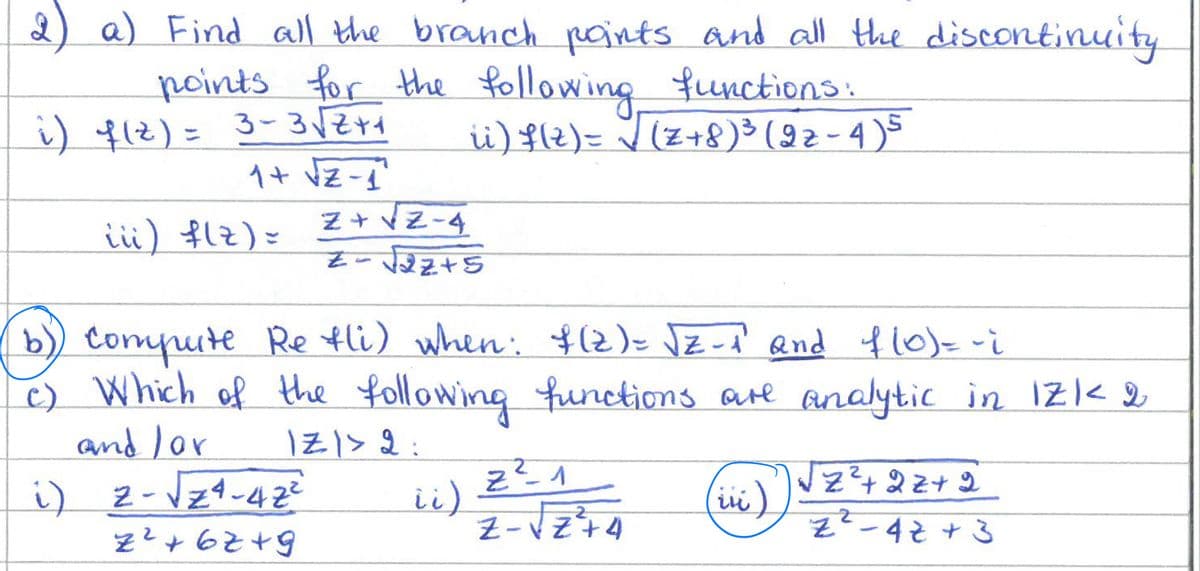 2) a) Find all the branch points and all the discontinuity
points for the following functions:
i) f(z) = (3-3√(z+1))/(1+√(z-1)) ii) f(z) = √((z+8)³(2z-4)⁵)
iii) f(z) = (z+√(z-4))/(z-√(2z+5))
b) Compute Re f(i) when: f(z) = √(z-1) and f(0) = -i
c) Which of the following functions are analytic in |z| < 2
and/or |z| > 2:
i) (z-√(z⁴-4z²))/(z²+6z+9) ii) (z²-1)/(z-√(z²+4)) iii) √(z²+2z+2)/(z²-4z+3)